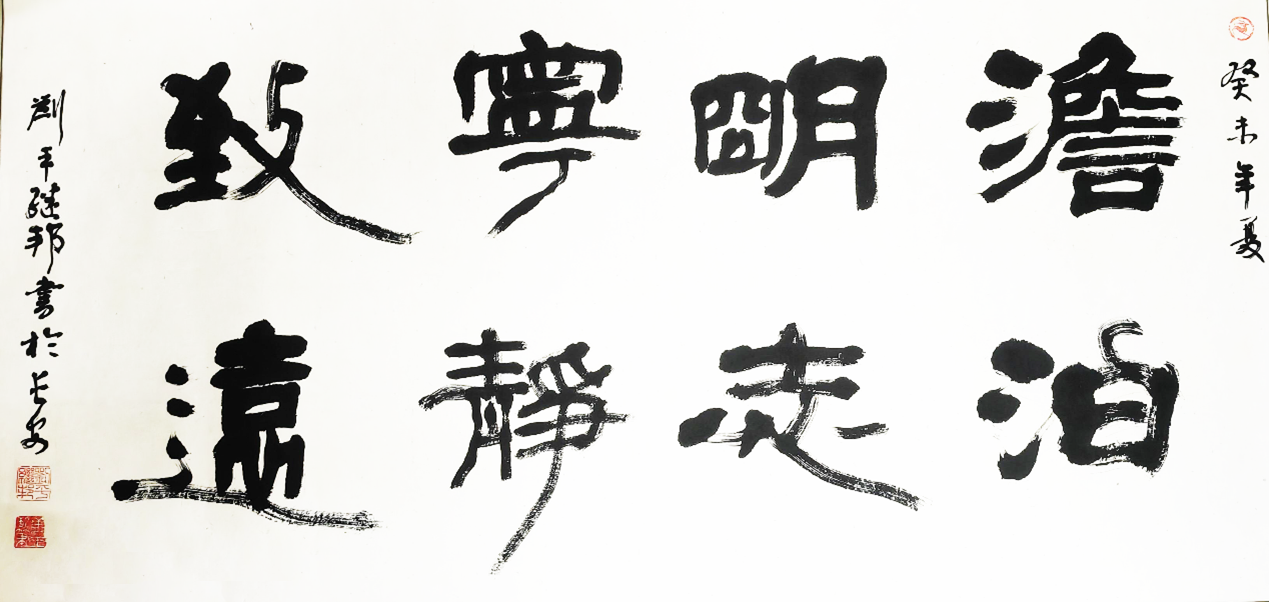 癸未年夏
澹泊
明志
寧靜
致遠
劉平継邦書於长安